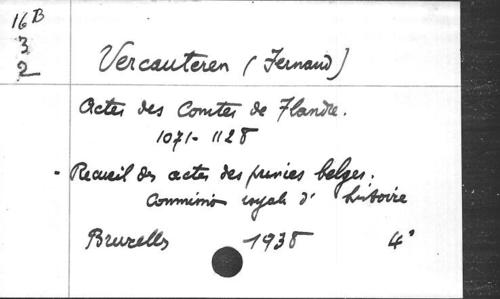 16 B
3
2
Vercauteren (Fernand)
Actes des Comtes de Flandre.
1071-1128
- Recueil des actes des princes belges.
Commission royale d'histoire
Bruxelles 1938 4°